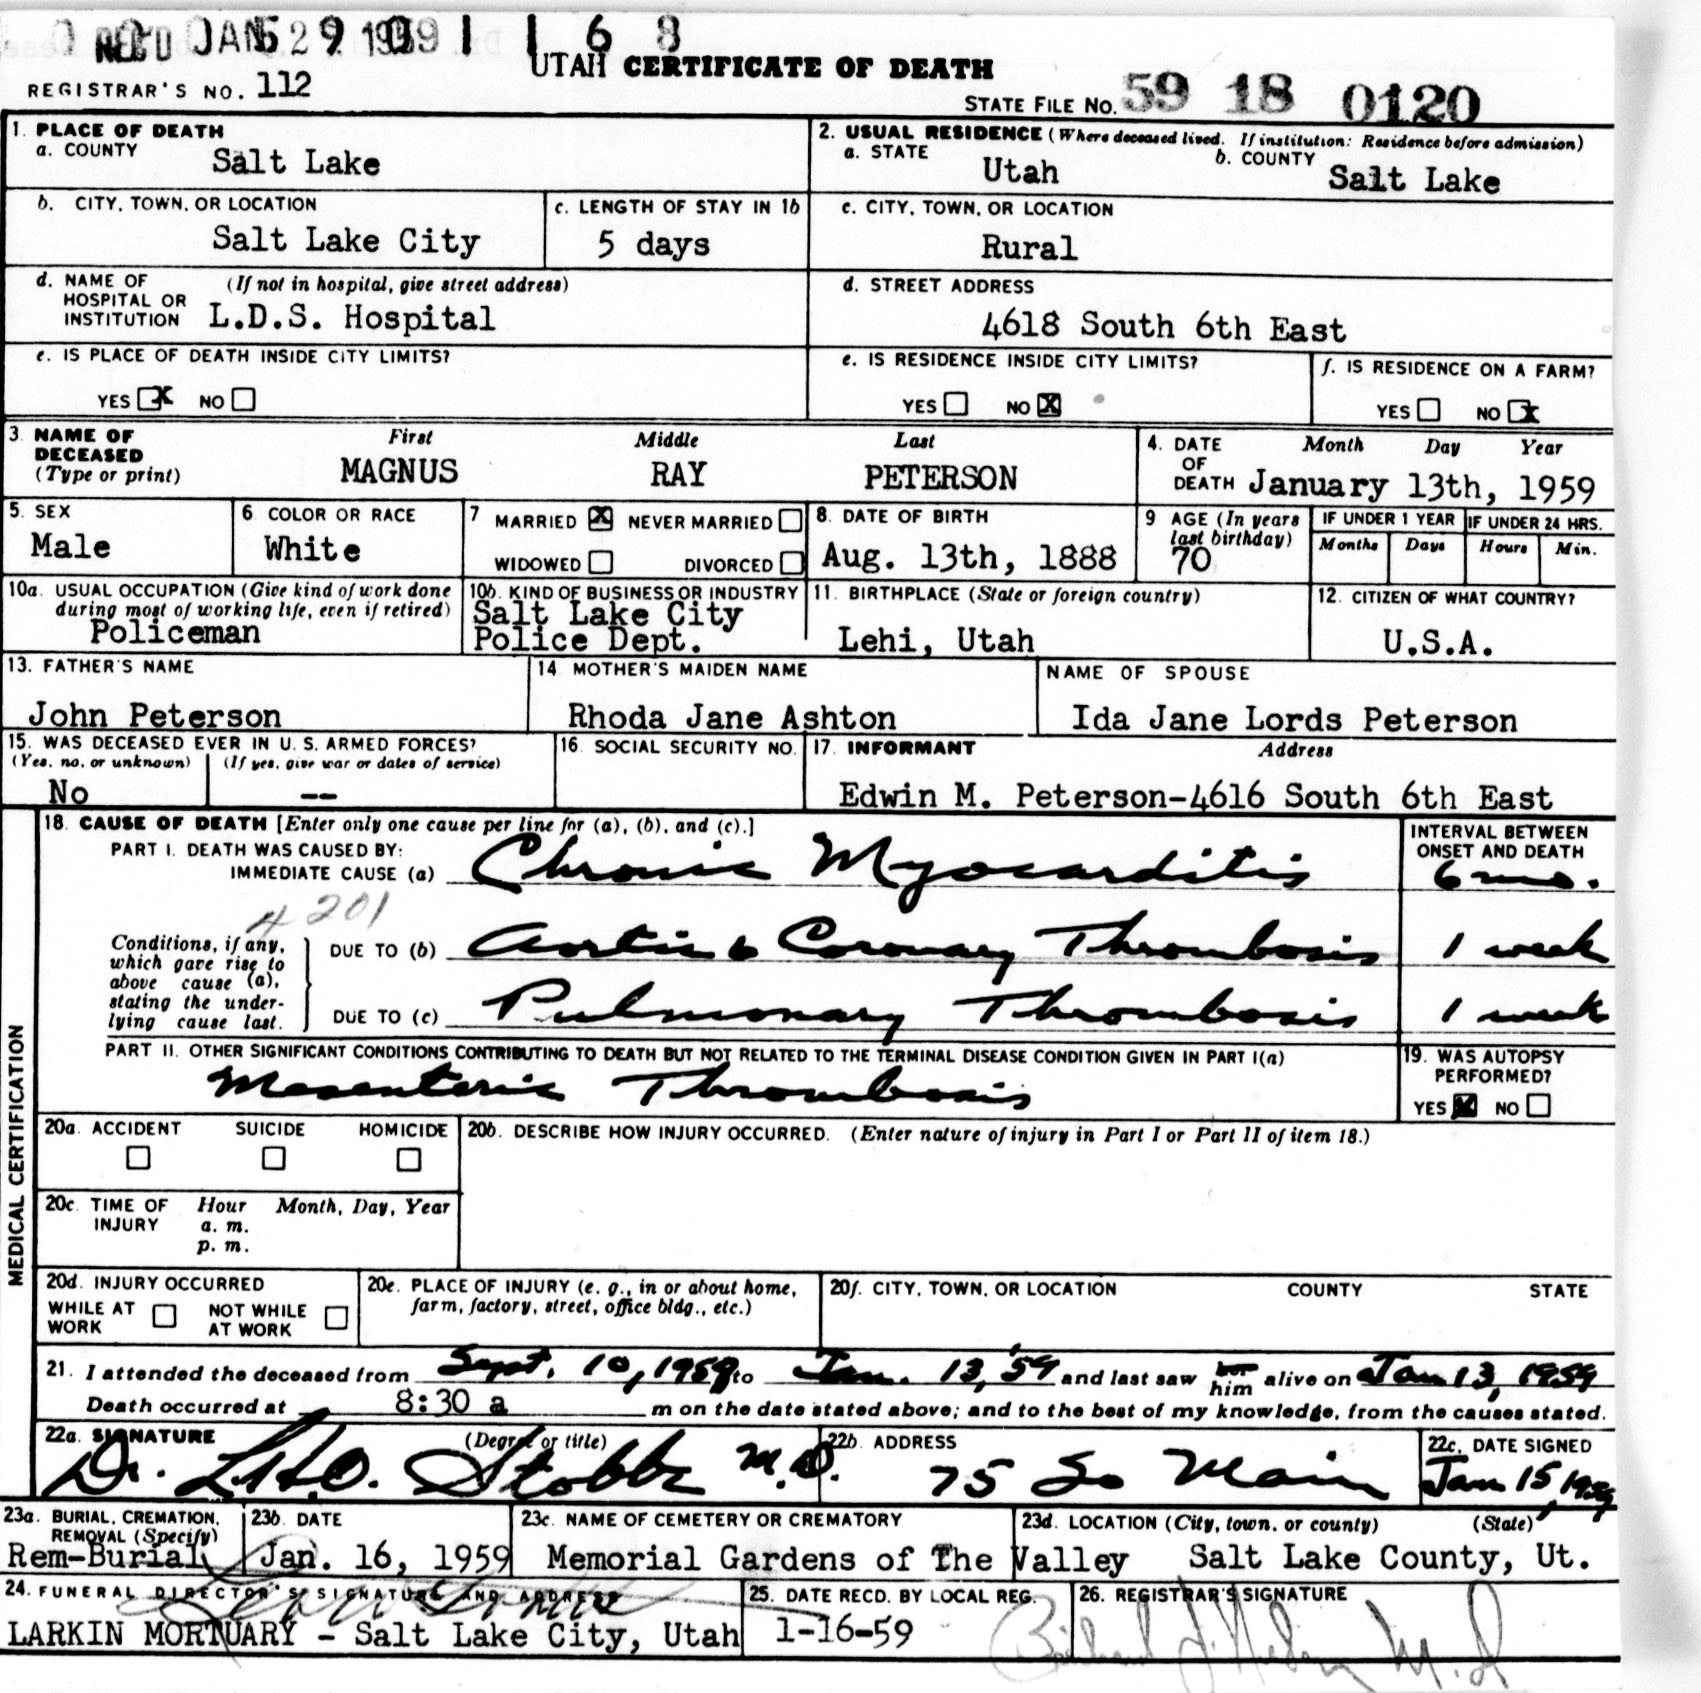 REC'D JAN 29 1959 1 1 6 8
UTAH CERTIFICATE OF DEATH
REGISTRAR'S NO. 112
STATE FILE NO. 59 18 0120
1. PLACE OF DEATH
a. COUNTY Salt Lake
2. USUAL RESIDENCE (Where deceased lived. If institution: Residence before admission)
a. STATE Utah b. COUNTY Salt Lake
b. CITY, TOWN, OR LOCATION Salt Lake City
c. LENGTH OF STAY IN 1b 5 days
c. CITY, TOWN, OR LOCATION Rural
d. NAME OF HOSPITAL OR INSTITUTION (If not in hospital, give street address) L.D.S. Hospital
d. STREET ADDRESS 4618 South 6th East
e. IS PLACE OF DEATH INSIDE CITY LIMITS?
YES X NO
e. IS RESIDENCE INSIDE CITY LIMITS?
YES NO X
f. IS RESIDENCE ON A FARM?
YES NO X
3. NAME OF DECEASED (Type or print) First Middle Last
MAGNUS RAY PETERSON
4. DATE OF DEATH Month Day Year
January 13th, 1959
5. SEX Male
6. COLOR OR RACE White
7 MARRIED X NEVER MARRIED
WIDOWED DIVORCED
8. DATE OF BIRTH Aug. 13th, 1888
9 AGE (In years last birthday) 70
IF UNDER 1 YEAR Months Days
IF UNDER 24 HRS. Hours Min.
10a. USUAL OCCUPATION (Give kind of work done during most of working life, even if retired) Policeman
10b. KIND OF BUSINESS OR INDUSTRY Salt Lake City Police Dept.
11. BIRTHPLACE (State or foreign country) Lehi, Utah
12. CITIZEN OF WHAT COUNTRY? U.S.A.
13. FATHER'S NAME John Peterson
14 MOTHER'S MAIDEN NAME Rhoda Jane Ashton
NAME OF SPOUSE Ida Jane Lords Peterson
15. WAS DECEASED EVER IN U. S. ARMED FORCES?
(Yes, no, or unknown) (If yes, give war or dates of service)
No --
16. SOCIAL SECURITY NO.
17. INFORMANT Address
Edwin M. Peterson-4616 South 6th East
MEDICAL CERTIFICATION
18. CAUSE OF DEATH [Enter only one cause per line for (a), (b), and (c).]
INTERVAL BETWEEN ONSET AND DEATH
PART I. DEATH WAS CAUSED BY:
IMMEDIATE CAUSE (a) Chronic Myocarditis 6 mo.
4201
Conditions, if any, which gave rise to above cause (a), stating the underlying cause last.
DUE TO (b) Aortic & Coronary Thrombosis 1 week
DUE TO (c) Pulmonary Thrombosis 1 week
PART II. OTHER SIGNIFICANT CONDITIONS CONTRIBUTING TO DEATH BUT NOT RELATED TO THE TERMINAL DISEASE CONDITION GIVEN IN PART I(a)
Mesenteric Thrombosis
19. WAS AUTOPSY PERFORMED?
YES X NO
20a. ACCIDENT SUICIDE HOMICIDE
20b. DESCRIBE HOW INJURY OCCURRED. (Enter nature of injury in Part I or Part II of item 18.)
20c. TIME OF INJURY Hour Month, Day, Year
a. m.
p. m.
20d. INJURY OCCURRED
WHILE AT WORK NOT WHILE AT WORK
20e. PLACE OF INJURY (e. g., in or about home, farm, factory, street, office bldg., etc.)
20f. CITY, TOWN, OR LOCATION COUNTY STATE
21. I attended the deceased from Sept. 10, 1959 to Jan. 13, '59 and last saw her him alive on Jan 13, 1959
Death occurred at 8:30 a m on the date stated above; and to the best of my knowledge, from the causes stated.
22a. SIGNATURE (Degree or title)
Dr. Stobbe M.D.
22b. ADDRESS 75 So Main
22c. DATE SIGNED Jan 15, 1959
23a. BURIAL, CREMATION, REMOVAL (Specify) Rem-Burial
23b. DATE Jan. 16, 1959
23c. NAME OF CEMETERY OR CREMATORY
23d. LOCATION (City, town, or county) (State)
Memorial Gardens of The Valley Salt Lake County, Ut.
24. FUNERAL DIRECTOR'S SIGNATURE AND ADDRESS
LARKIN MORTUARY - Salt Lake City, Utah
25. DATE RECD. BY LOCAL REG. 1-16-59
26. REGISTRAR'S SIGNATURE
M.D